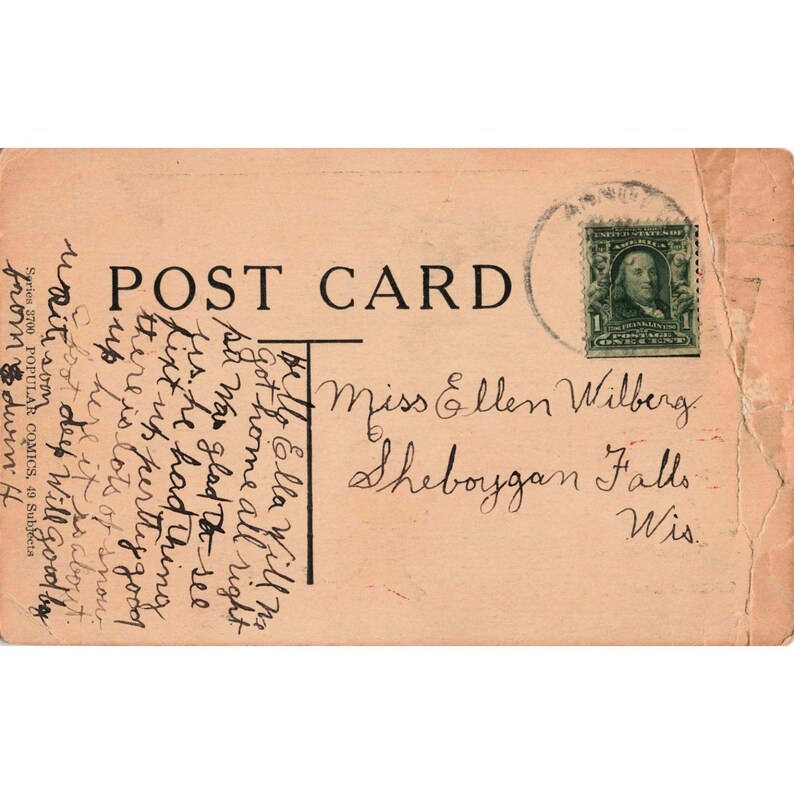 POST CARD
SERIES 1902
UNITED STATES OF
AMERICA
1
1706 FRANKLIN 1790
POSTAGE
ONE CENT
1
Miss Ellen Wilberg.
Sheboygan Falls
Wis.
Hello Ella Will we
got home all right
pa was glad to see
us. he had thing
fixt up perrtty good
there is lots of snow
up here it is about
foot deep Will good by
rite son
from Edwin H
Series 3700 POPULAR COMICS, 49 Subjects